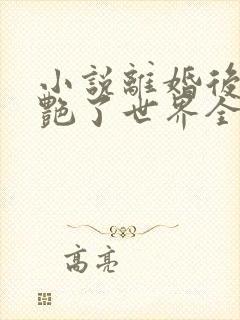 小說離婚後
艷了世界全
高亮